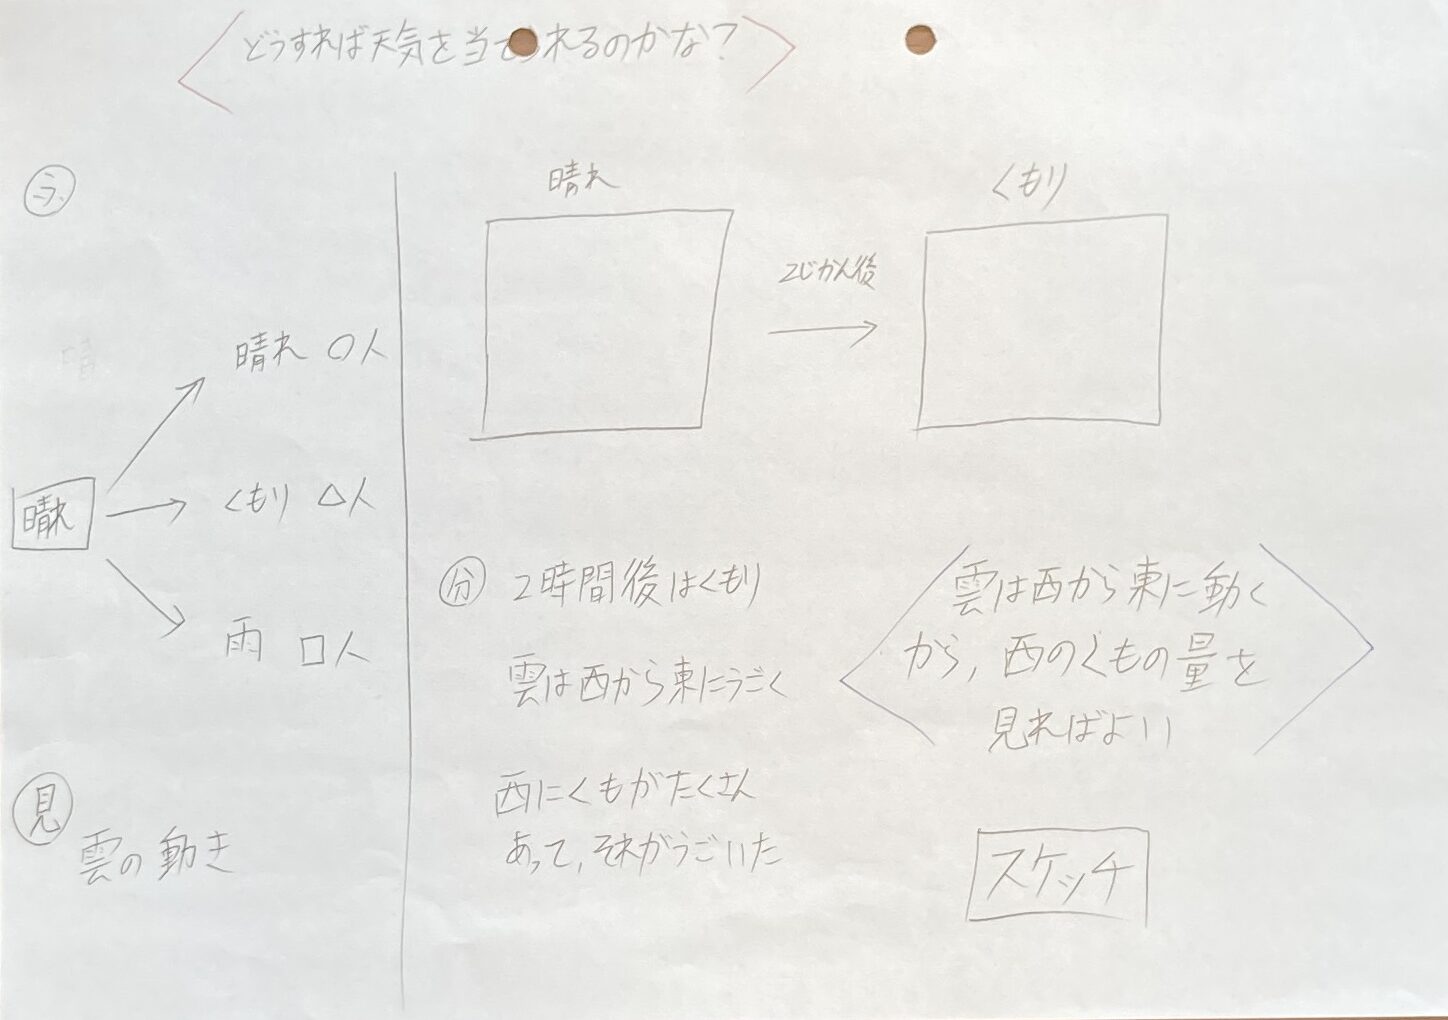 どうすれば天気を当てられるのかな?
ラ
晴れ
くもり
2じかん後
晴れ ○人
晴れ
くもり △人
雨 □人
見
雲の動き
分 2時間後はくもり
雲は西から東にうごく
西にくもがたくさん
あって,それがうごいた
雲は西から東に動く
から,西のくもの量を
見ればよい
スケッチ